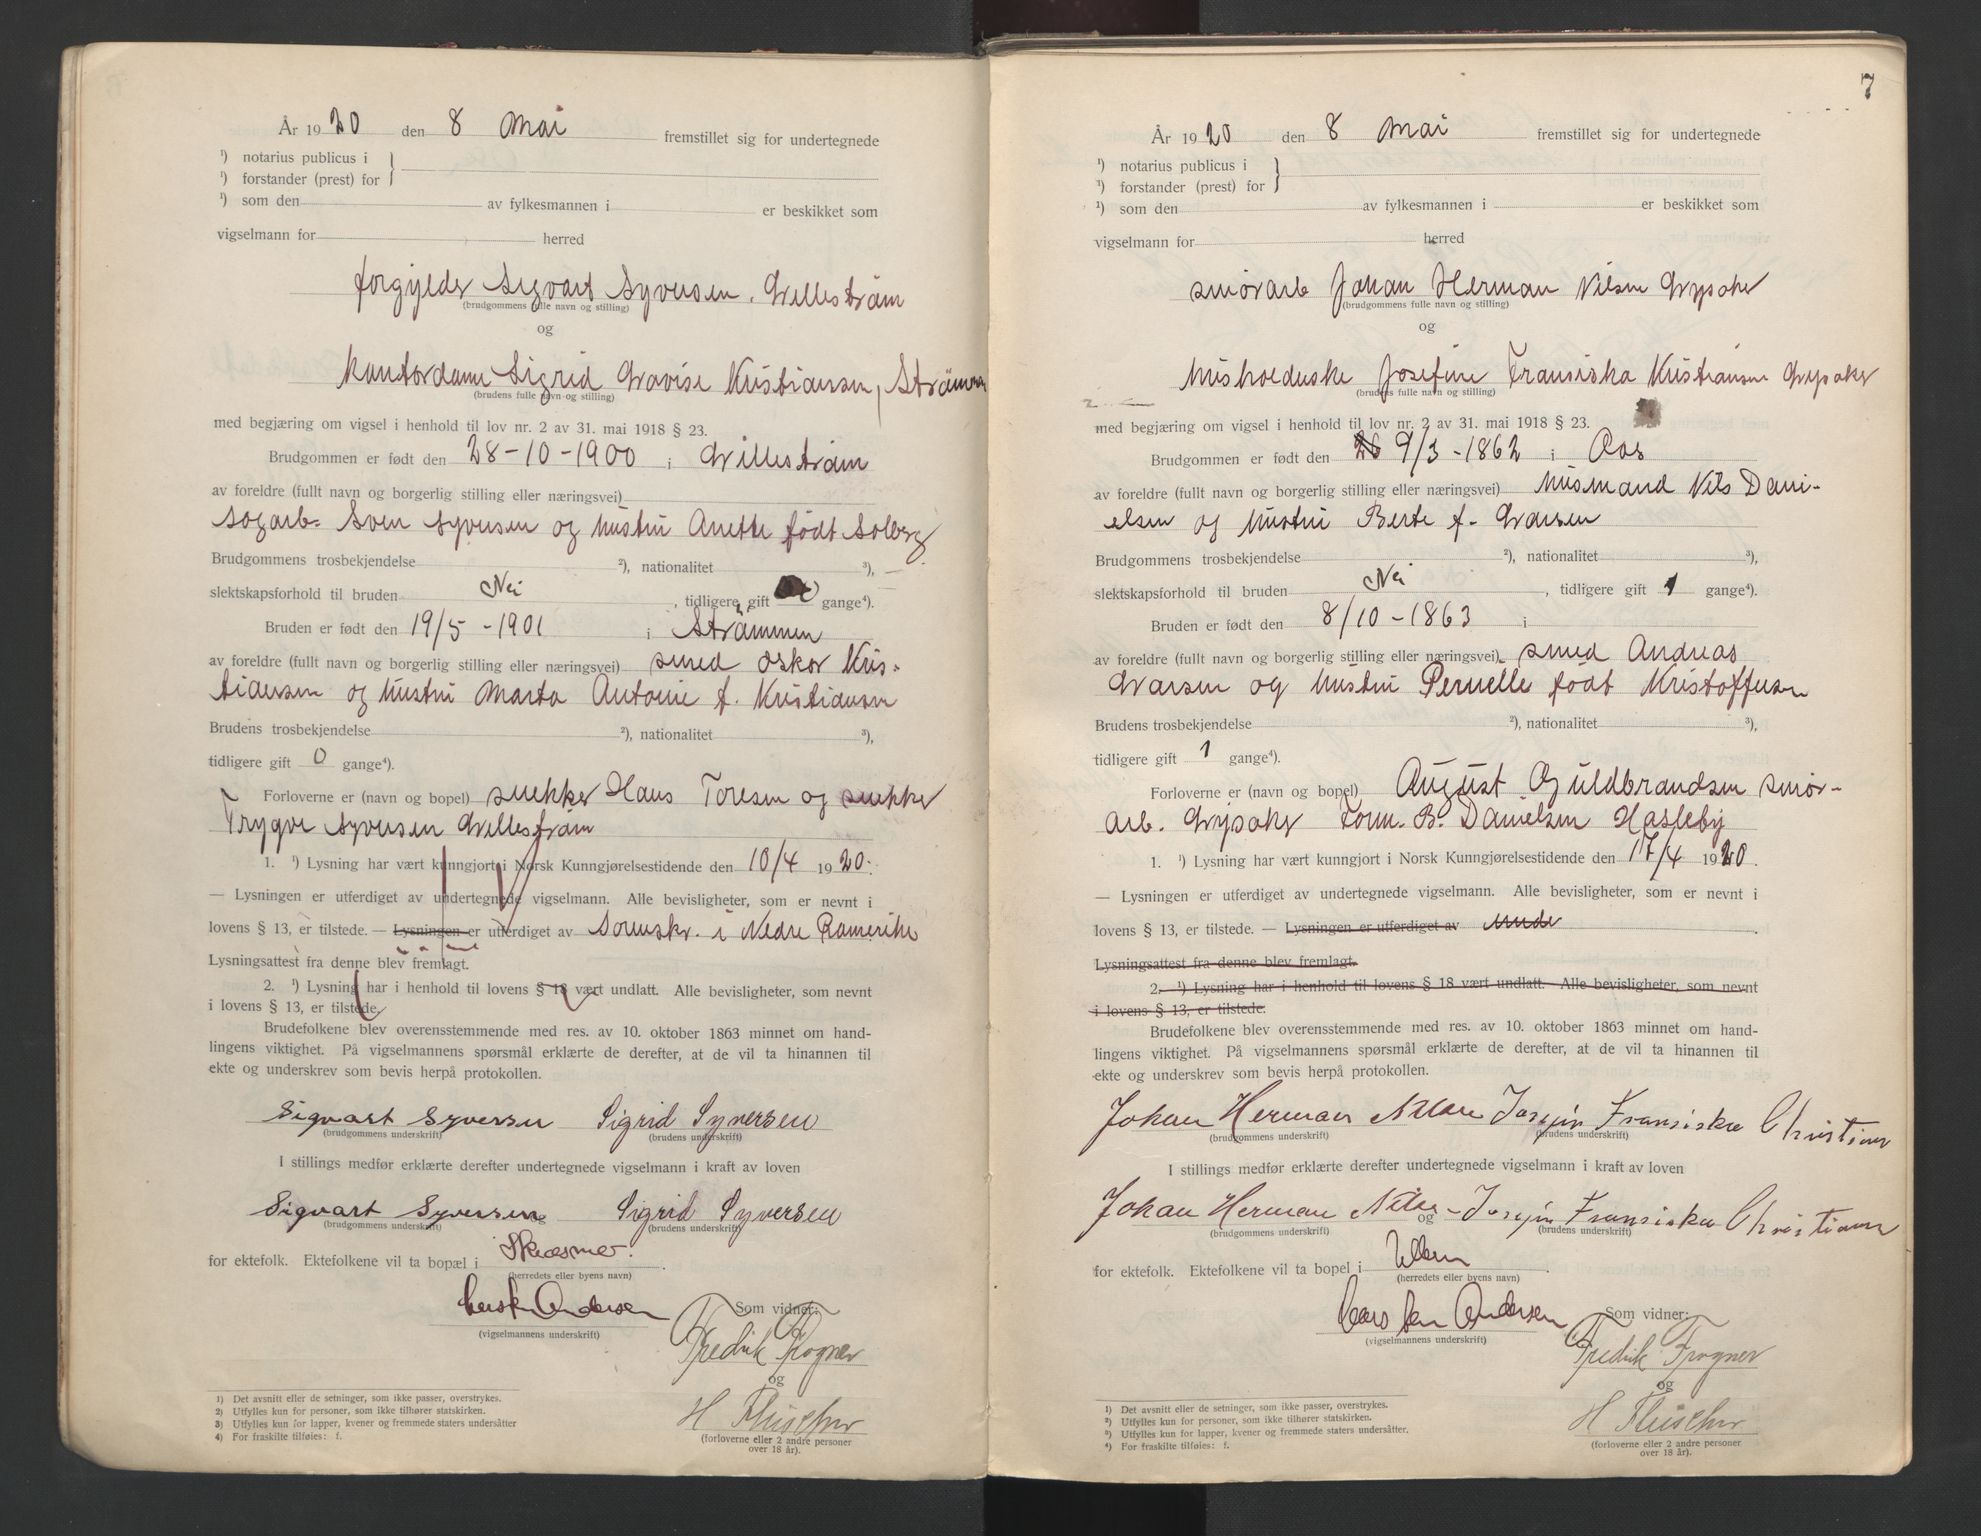 År 1920 den 8 Mai fremstillet sig for undertegnede
¹) notarius publicus i
¹) forstander (prest) for
¹) som den av fylkesmannen i er beskikket som
vigselmann for herred
forgylder Sigvart Syversen. Lillestrøm
(brudgommens fulle navn og stilling)
og
Kontordame Sigrid Lovise Kristiansen, Strømmen
(brudens fulle navn og stilling)
med begjæring om vigsel i henhold til lov nr. 2 av 31. mai 1918 § 23.
Brudgommen er født den 28-10-1900 i Lillestrøm
av foreldre (fullt navn og borgerlig stilling eller næringsvei)
Sagarb. Sven Syversen og hustru Anette født Solberg
Brudgommens trosbekjendelse ²), nationalitet ³),
slektskapsforhold til bruden Nei, tidligere gift 0 gange⁴).
Bruden er født den 19/5-1901 i Strømmen
av foreldre (fullt navn og borgerlig stilling eller næringsvei) smed Oskar Kris-
tiansen og hustru Marta Antonie f. Kristiansen
Brudens trosbekjendelse ²), nationalitet ³),
tidligere gift 0 gange⁴).
Forloverne er (navn og bopel) snekker Hans Toresen og snekker
Trygve Syversen Lillestrøm
1. ¹) Lysning har vært kunngjort i Norsk Kunngjørelsestidende den 10/4 1920.
— Lysningen er utferdiget av undertegnede vigselmann. Alle bevisligheter, som er nevnt i
lovens § 13, er tilstede. — Lysningen er utferdiget av Sorenskr. i Nedre Romerike
Lysningsattest fra denne blev fremlagt.
2. ¹) Lysning har i henhold til lovens § 18 vært undlatt. Alle bevisligheter, som nevnt
i lovens § 13, er tilstede.
Brudefolkene blev overensstemmende med res. av 10. oktober 1863 minnet om hand-
lingens viktighet. På vigselmannens spørsmål erklærte de derefter, at de vil ta hinannen til
ekte og underskrev som bevis herpå protokollen.
Sigvart Syversen Sigrid Syversen
(brudgommens underskrift) (brudens underskrift)
I stillings medfør erklærte derefter undertegnede vigselmann i kraft av loven
Sigvart Syversen og Sigrid Syversen
(brudgommens underskrift) (brudens underskrift)
for ektefolk. Ektefolkene vil ta bopæl i Skedsmo.
(herredets eller byens navn)
Carsten Andersen Som vidner:
(vigselmannens underskrift)
Fredrik Frogner
og
H Fleischer
(forloverne eller 2 andre personer
over 18 år).
1) Det avsnitt eller de setninger, som ikke passer, overstrykes.
2) Utfylles kun for personer, som ikke tilhører statskirken.
3) Utfylles kun for lapper, kvener og fremmede staters undersåtter
4) For fraskilte tilføies: f.
7
År 1920 den 8 Mai fremstillet sig for undertegnede
¹) notarius publicus i
¹) forstander (prest) for
¹) som den av fylkesmannen i er beskikket som
vigselmann for herred
smørarb Johan Herman Nilsen Lysaker
(brudgommens fulle navn og stilling)
og
husholderske Josefine Fransiska Kristiansen Lysaker
(brudens fulle navn og stilling)
med begjæring om vigsel i henhold til lov nr. 2 av 31. mai 1918 § 23.
Brudgommen er født den 9/3-1862 i Aas
av foreldre (fullt navn og borgerlig stilling eller næringsvei) husmand Nils Dani-
elsen og hustru Berte f. Larsen
Brudgommens trosbekjendelse ²), nationalitet ³),
slektskapsforhold til bruden Nei, tidligere gift 1 gange⁴).
Bruden er født den 8/10-1863 i
av foreldre (fullt navn og borgerlig stilling eller næringsvei) smed Andreas
Larsen og hustru Pernelle født Kristoffersen
Brudens trosbekjendelse ²), nationalitet ³),
tidligere gift 1 gange⁴).
Forloverne er (navn og bopel) August Guldbrandsen smør-
arb. Lysaker B. Danielsen Hasleby
1. ¹) Lysning har vært kunngjort i Norsk Kunngjørelsestidende den 17/4 1920.
— Lysningen er utferdiget av undertegnede vigselmann. Alle bevisligheter, som er nevnt i
lovens § 13, er tilstede. — Lysningen er utferdiget av
Lysningsattest fra denne blev fremlagt.
2. ¹) Lysning har i henhold til lovens § 18 vært undlatt. Alle bevisligheter, som nevnt
i lovens § 13, er tilstede.
Brudefolkene blev overensstemmende med res. av 10. oktober 1863 minnet om hand-
lingens viktighet. På vigselmannens spørsmål erklærte de derefter, at de vil ta hinannen til
ekte og underskrev som bevis herpå protokollen.
Johan Herman Nilsen Josefin Fransiska Christiansen
(brudgommens underskrift) (brudens underskrift)
I stillings medfør erklærte derefter undertegnede vigselmann i kraft av loven
Johan Herman Nilsen og Josefin Fransiska Christiansen
(brudgommens underskrift) (brudens underskrift)
for ektefolk. Ektefolkene vil ta bopel i Ullern
(herredets eller byens navn)
Carsten Andersen Som vidner:
(vigselmannens underskrift)
Fredrik Frogner
og
H Fleischer
(forloverne eller 2 andre personer
over 18 år).
¹) Det avsnitt eller de setninger, som ikke passer, overstrykes.
²) Utfylles kun for personer, som ikke tilhører statskirken.
³) Utfylles kun for lapper, kvener og fremmede staters undersåtter.
⁴) For fraskilte tilføies: f.